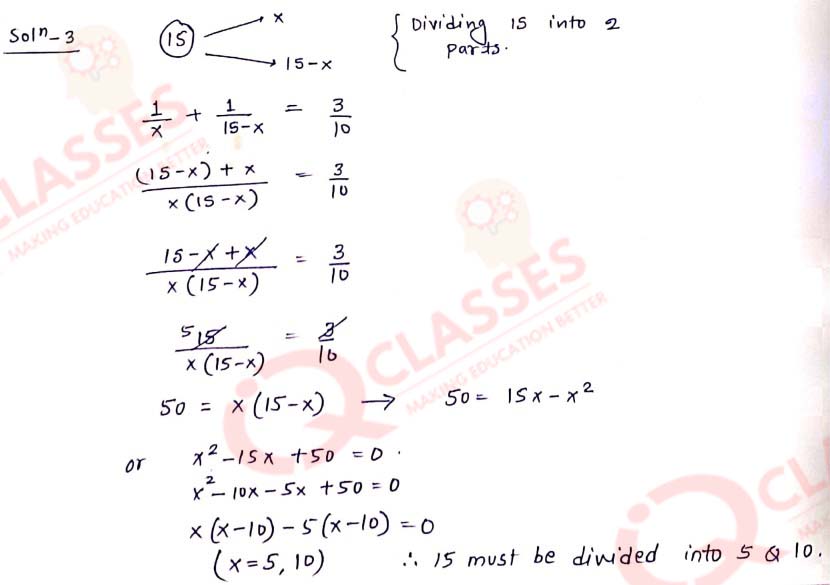 Solⁿ-3 15 → x { Dividing 15 into 2
→ 15-x parts.
1/x + 1/(15-x) = 3/10
((15-x) + x)/(x(15-x)) = 3/10
(15-x+x)/(x(15-x)) = 3/10
5 15/(x(15-x)) = 3/10
50 = x(15-x) → 50 = 15x - x²
or x² - 15x + 50 = 0.
x² - 10x - 5x + 50 = 0
x(x-10) - 5(x-10) = 0
(x = 5, 10) ∴ 15 must be divided into 5 & 10.
CLASSES
MAKING EDUCATION BETTER
iQ CLASSES
MAKING EDUCATION BETTER
CL